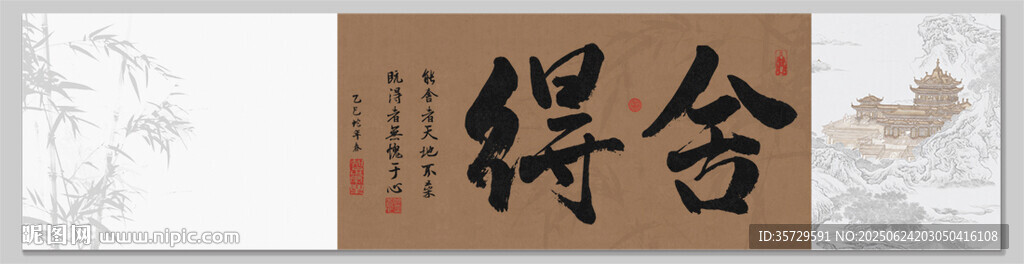 舍得
能舍者天地不枭
既得者無愧于心
乙巳蛇年春
昵图网 www.nipic.com
ID:35729591 NO:20250624203050416108